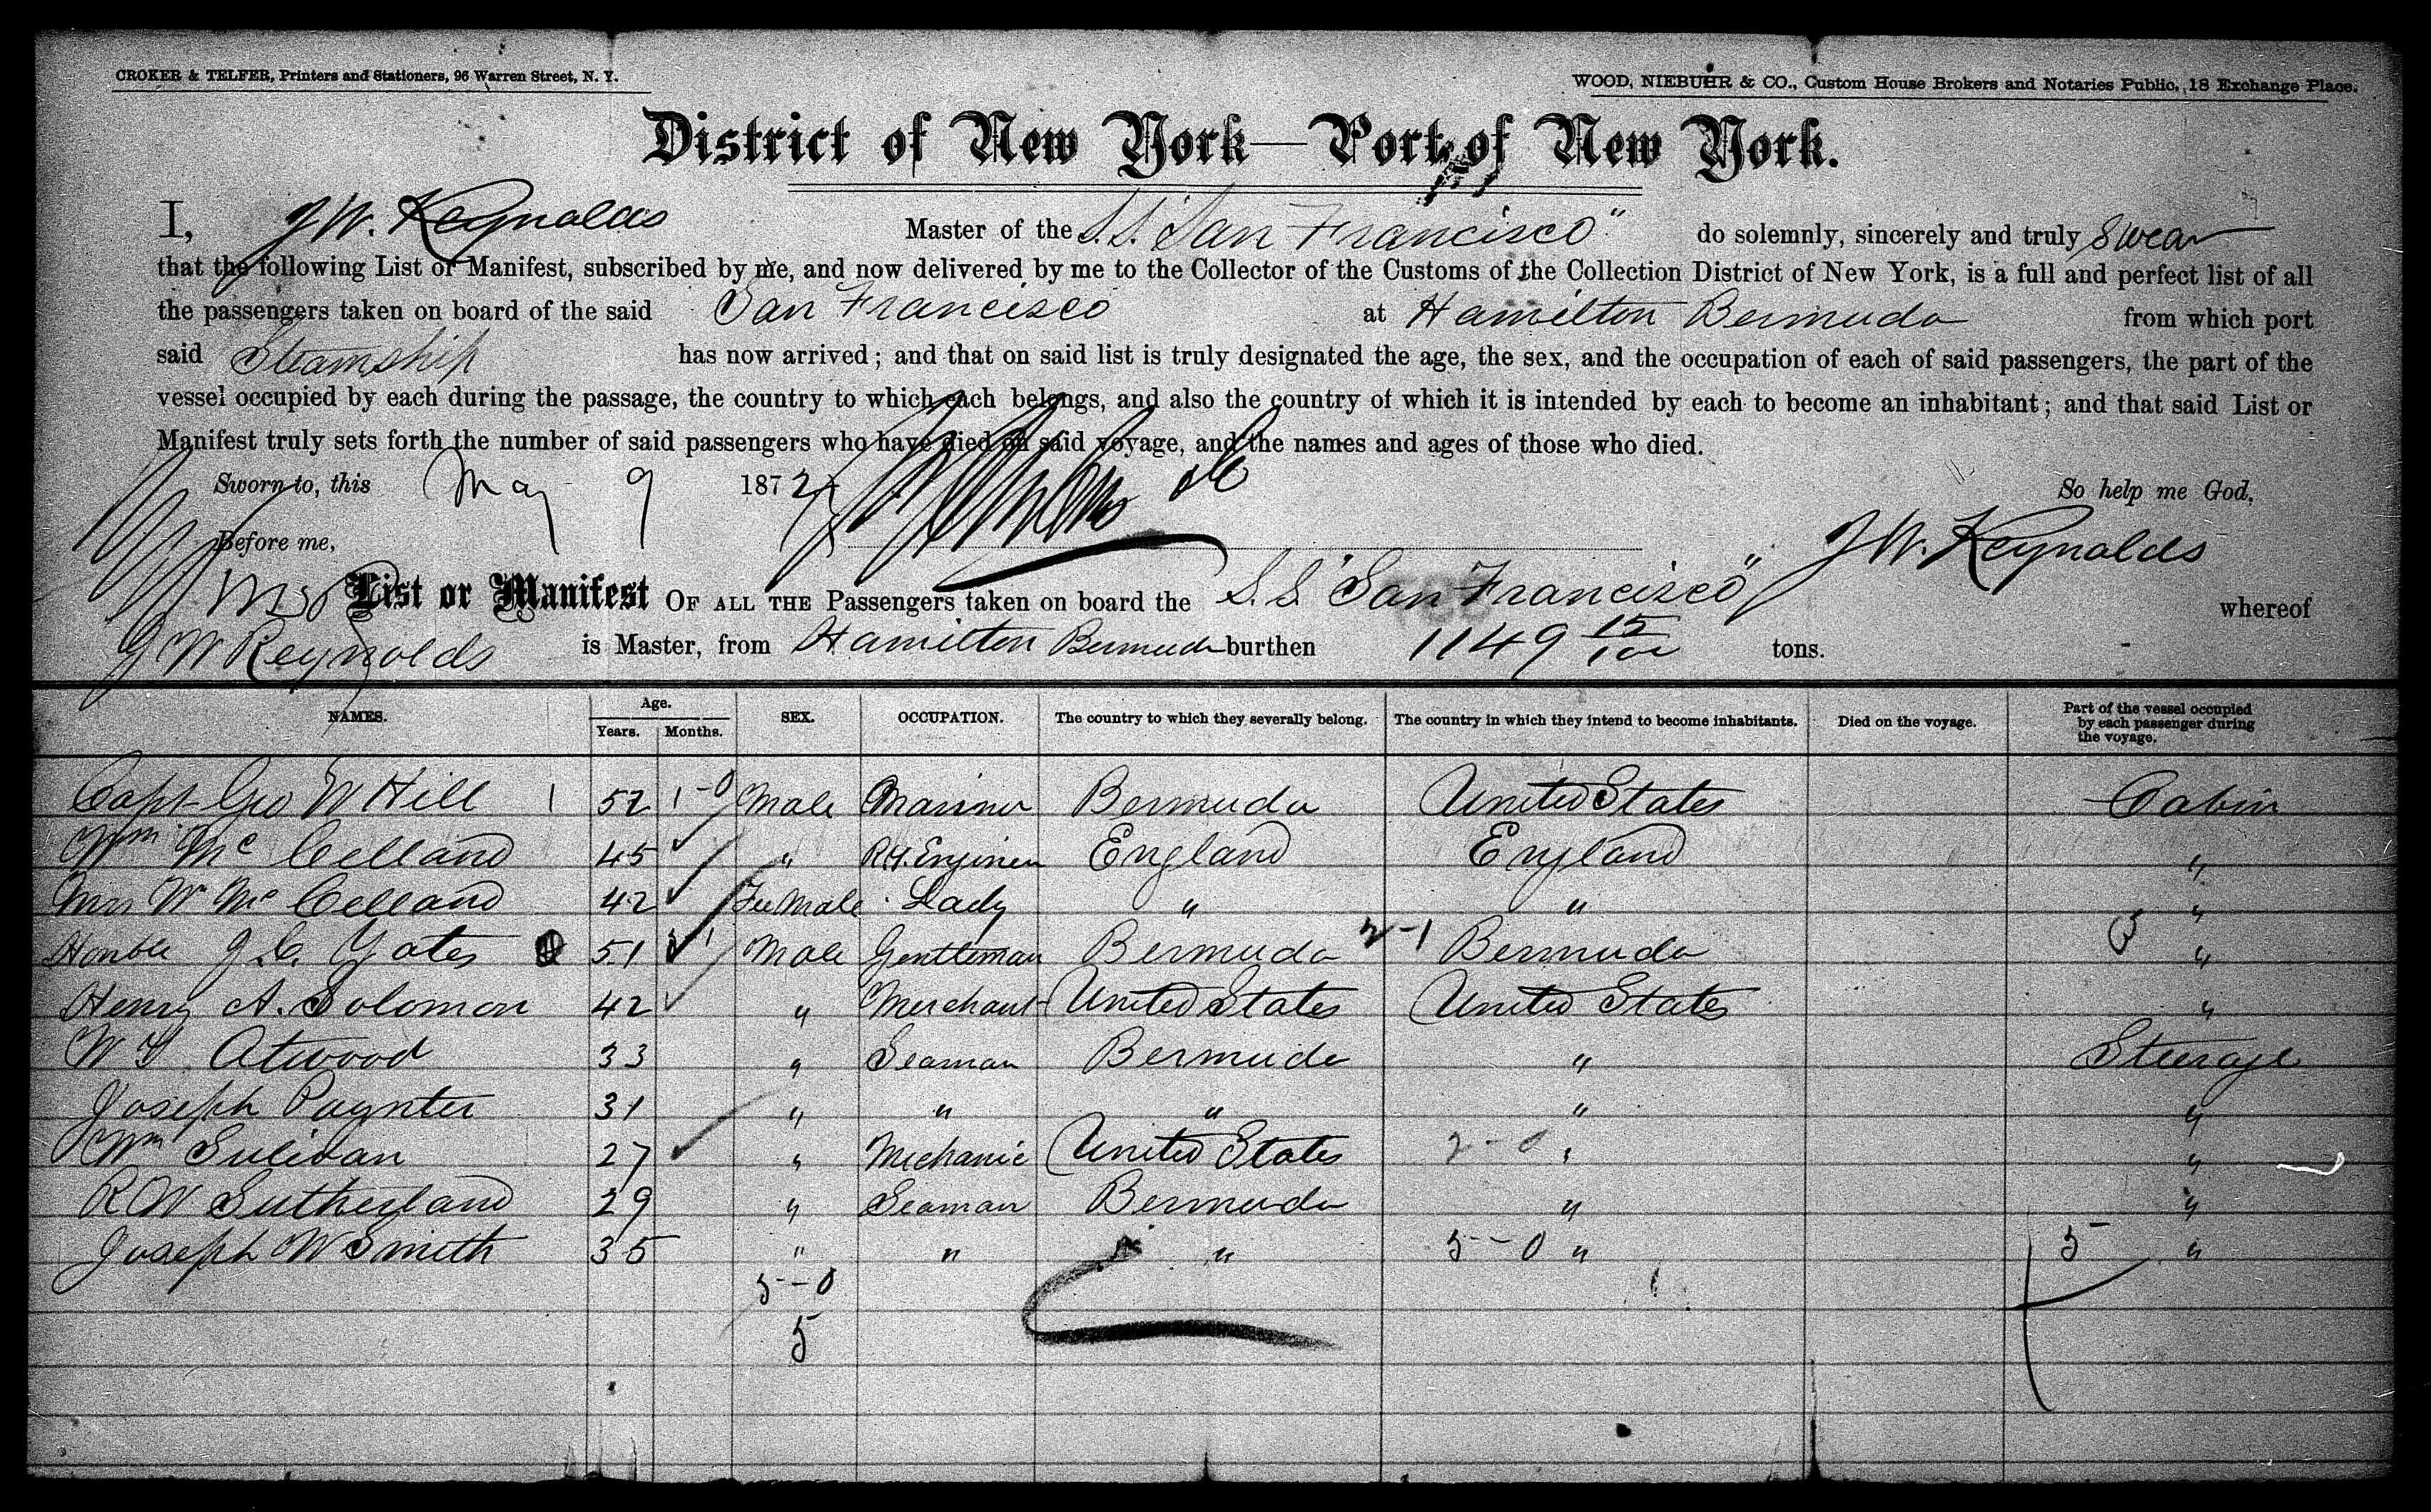 CROKER & TELFER, Printers and Stationers, 96 Warren Street, N. Y.
WOOD, NIEBUHR & CO., Custom House Brokers and Notaries Public, 18 Exchange Place.
District of New York—Port of New York.
I, J W. Reynolds Master of the S.S. "San Francisco" do solemnly, sincerely and truly Swear
that the following List or Manifest, subscribed by me, and now delivered by me to the Collector of the Customs of the Collection District of New York, is a full and perfect list of all
the passengers taken on board of the said San Francisco at Hamilton Bermuda from which port
said Steamship has now arrived; and that on said list is truly designated the age, the sex, and the occupation of each of said passengers, the part of the
vessel occupied by each during the passage, the country to which each belongs, and also the country of which it is intended by each to become an inhabitant; and that said List or
Manifest truly sets forth the number of said passengers who have died on said voyage, and the names and ages of those who died.
Sworn to, this May 9 1872 So help me God,
Before me, J W. Reynolds
List or Manifest OF ALL THE Passengers taken on board the S.S. "San Francisco" whereof
J W Reynolds is Master, from Hamilton Bermuda burthen 1149 15/100 tons.
NAMES. Age. Years. Months. SEX. OCCUPATION. The country to which they severally belong. The country in which they intend to become inhabitants. Died on the voyage. Part of the vessel occupied by each passenger during the voyage.
Capt Geo W Hill 1 52 1-0 Male Mariner Bermuda United States Cabin
Wm Mc Celland 45 " Engineer England England "
Mrs W Mc Celland 42 Female Lady " " "
Honble J. Yates 51 Male Gentleman Bermuda 2-1 Bermuda "
Henry A. Solomon 42 " Merchant United States United States "
W Atwood 33 " Seaman Bermuda " Steerage
Joseph Paynter 31 " " " " "
Wm Sulivan 27 " Mechanic United States 2-0 " "
R W Sutherland 29 " Seaman Bermuda " "
Joseph W Smith 35 " " " 5-0 " 5 "
5-0
5